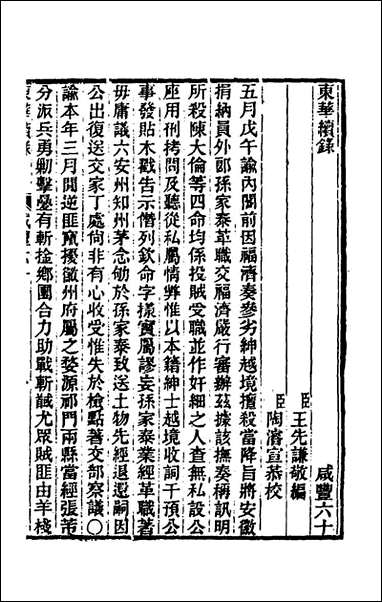 東華續錄
咸豐六十
臣王先謙敬編
臣陶濬宣恭校
五月戊午諭內閣前因福濟奏參劣紳越境擅殺當降旨將安徽
捐納員外郎孫家泰革職交福濟嚴行審辦茲據該撫奏稱訊明
所殺陳大倫等四命均係投賊受職並作奸細之人查無私設公
座用刑拷問及聽從私屬情弊惟以本籍紳士越境收詞干預公
事發貼木戳告示僭列欽命字樣實屬謬妄孫家泰業經革職著
毋庸議六安州知州茅念劬於孫家泰致送土物先經退還嗣因
公出復送交家丁處尙非有心收受惟失於檢點著交部察議〇
諭本年三月間逆匪竄擾徽州府屬之婺源祁門兩縣當經張芾
分派兵勇勦擊疊有斬捡鄉團合力助戰斬馘尤眾賊匪由羊棧